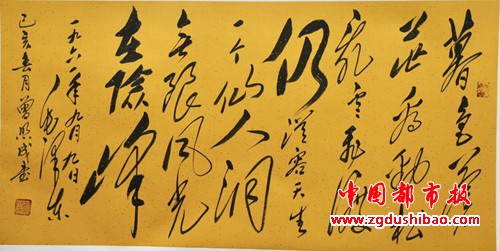 暮色苍
茫看劲松
乱云飞渡
仍
從容天生
一个仙人洞
无限风光
在险峰
一九六一年九月九日
毛泽东
己亥春月
中国都市报
www.zgdushibao.com